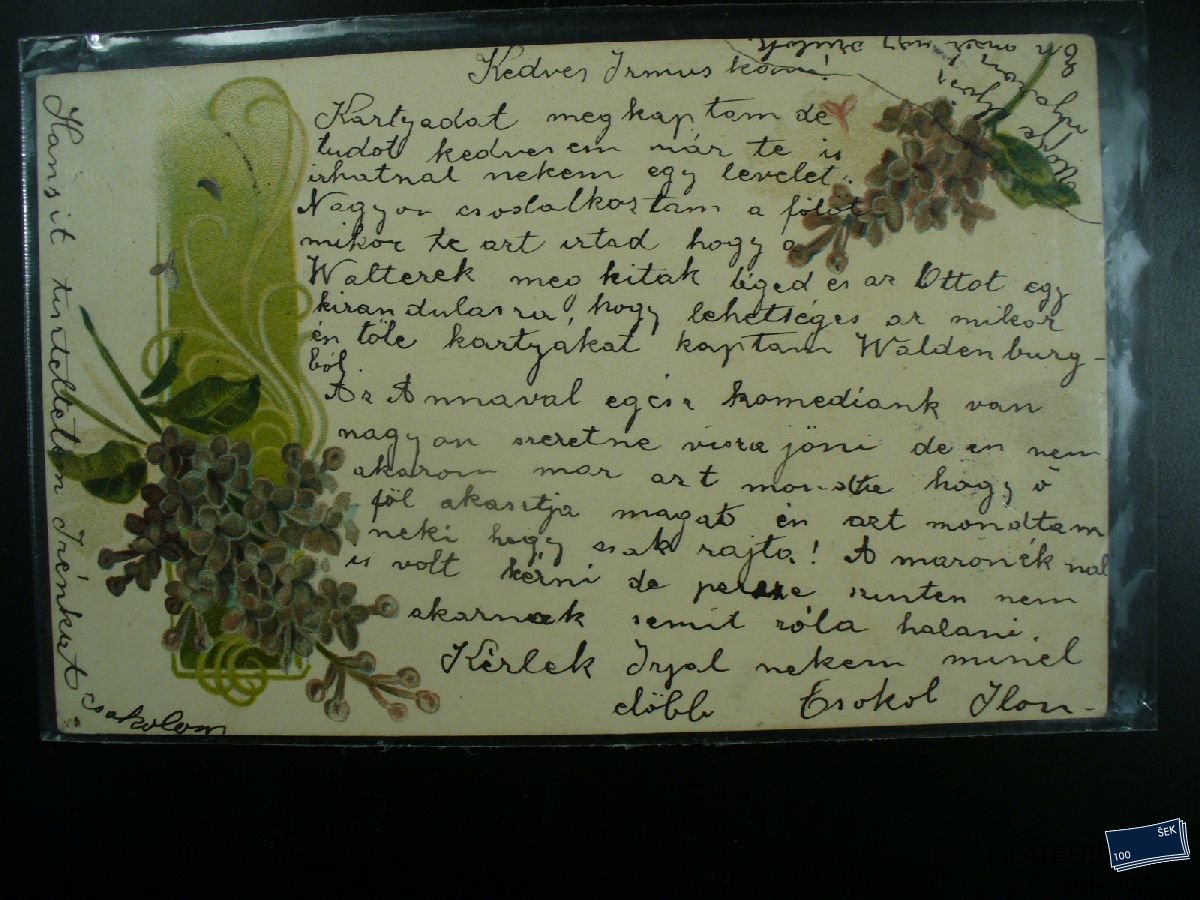 Kedves Irmuskám!
Kartyadat megkaptam de
tudot kedvesem már te is
irhatnal nekem egy levelet.
Nagyon csodalkoztam a
mikor te azt irtad hogy a
Walterek meg hitak téged es az Ottot egy
kirandulasra, hogy lehetséges az mikor
én töle kartyakat kaptam Waldenburg-
ból.
Az Annaval egész komediank van
nagyon szeretne vissza jöni de én nem
akarom mar azt mondta hogy ö
föl akasztja magat én azt mondtam
neki hogy csak rajta! A maronék nal
is volt kérni de persze szinten nem
akarnak semit róla halani.
Kérlek Irjal nekem minél
elöbb Csokol Ilon-
Hansit tiszteltetem Irénkét csokolom